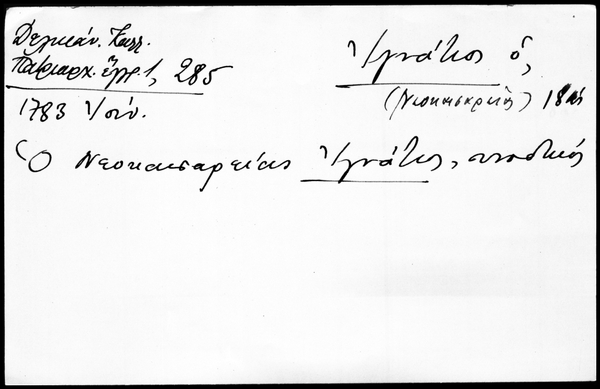 Δελικάν. Καλλ.
Πατριαρχ. ἔγγρ. 1, 285
1783 Ἰούν.
Ἰγνάτιος ὁ,
(Νεοκαισαρείας) 18ος
Ὁ Νεοκαισαρείας Ἰγνάτιος, συνοδικός